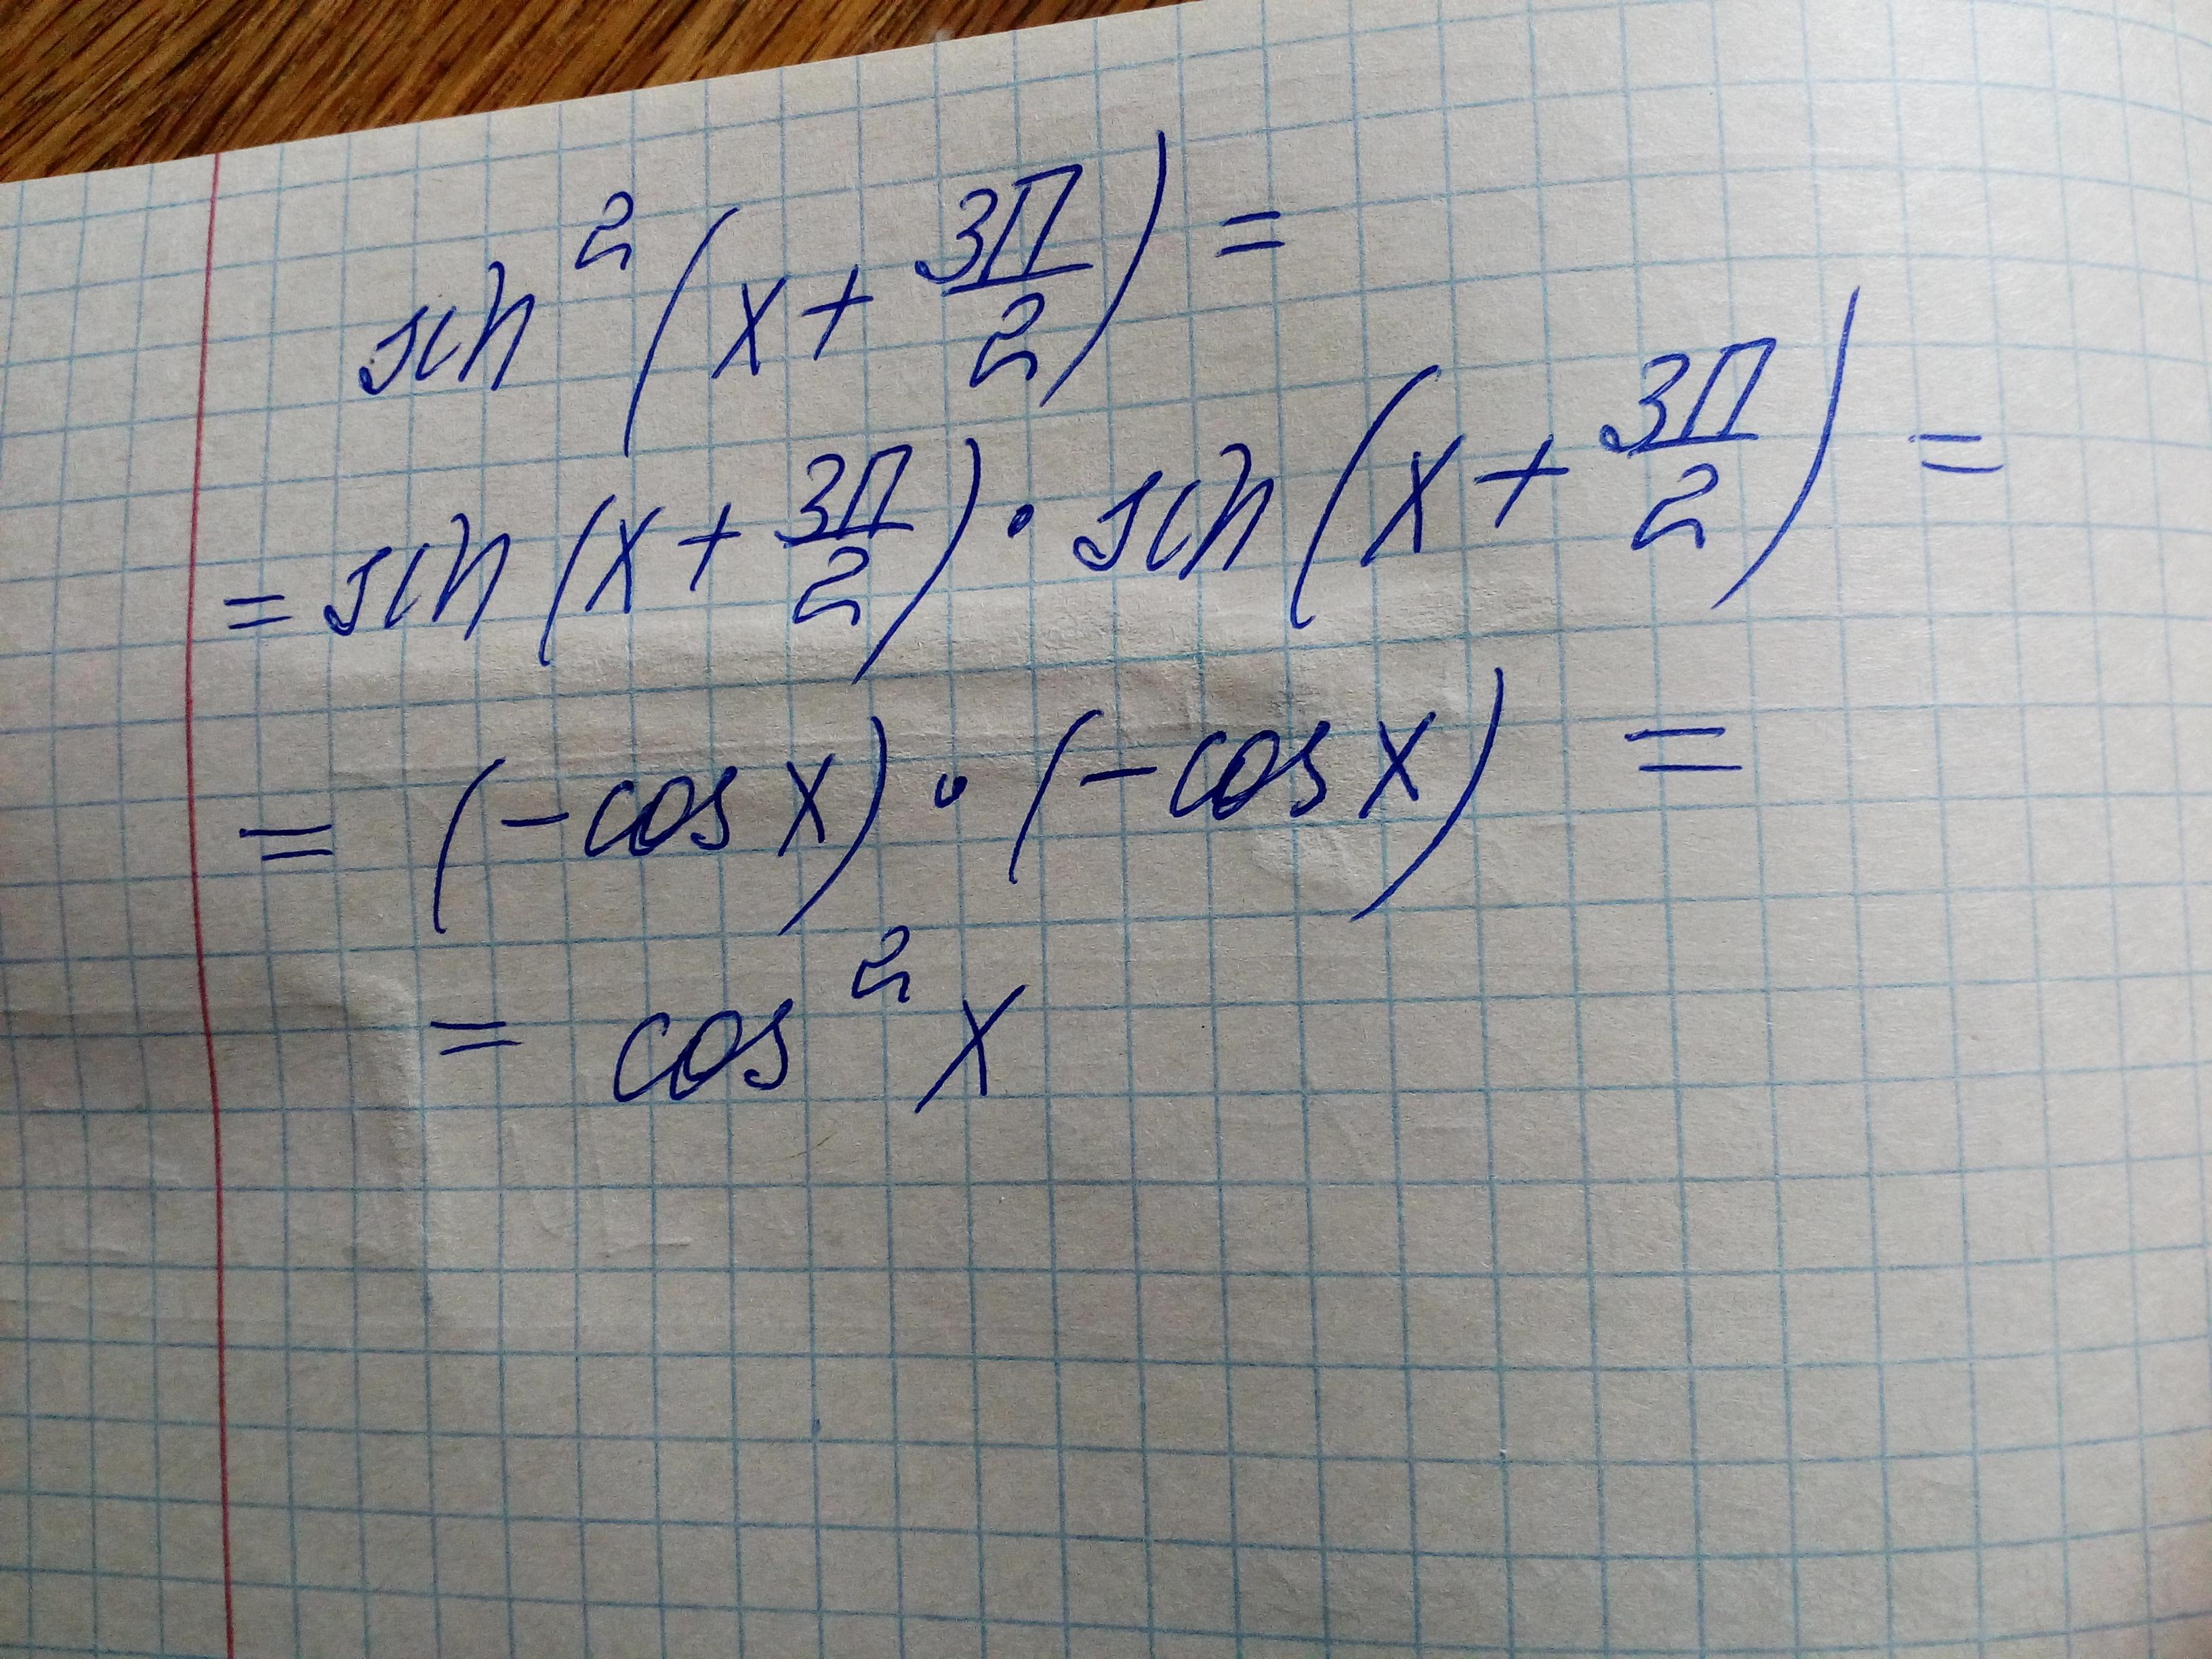 sin²(x + 3π/2) =
= sin(x + 3π/2) · sin(x + 3π/2) =
= (-cos x) · (-cos x) =
= cos² x